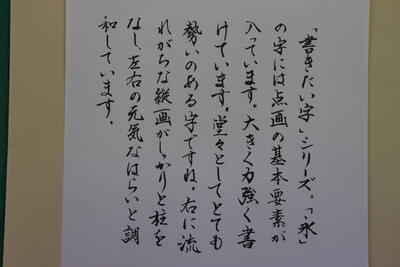 「書きたい字」シリーズ。「永」
の字には点画の基本要素が
入っています。大きく力強く書
けています。堂々としてとても
勢いのある字ですね。右に流
れがちな縦画がしっかりと柱を
なし、左右の元気なはらいと調
和しています。